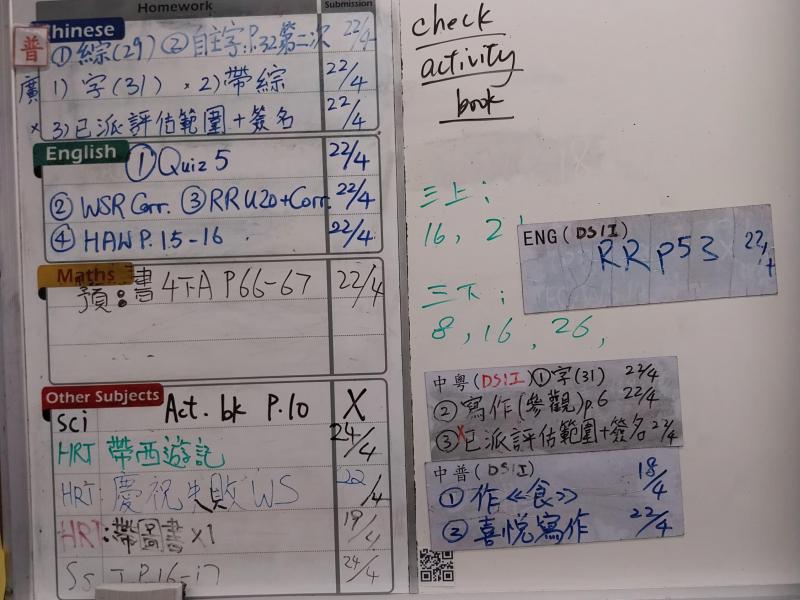 Homework
Submission
Chinese
普 ① 綜(29) ② 自主字:P.32第二次 22/4
廣 1) 字(31) × 2)帶綜 22/4
× 3)已派評估範圍+簽名 22/4
English
① Quiz 5 22/4
② WSR Corr. ③ RR U20+Corr. 22/4
④ HAW P.15-16 22/4
Maths
預:書 4下A P66-67 22/4
Other Subjects
Sci Act. bk P.10 X
HRT 帶西遊記 24/4
HRT: 慶祝失敗 WS 22/4
HRT:帶圖書 x1 19/4
Ss P.16-17 24/4
check
activity
book
三上:
16, 2
ENG(DSII)
RR p53 22/4
三下:
8, 16, 26,
中粵(DSII)①字(31) 22/4
②寫作(參觀)p6 22/4
③已派評估範圍+簽名 22/4
中普(DSII)
① 作《食》 18/4
② 喜悅寫作 22/4